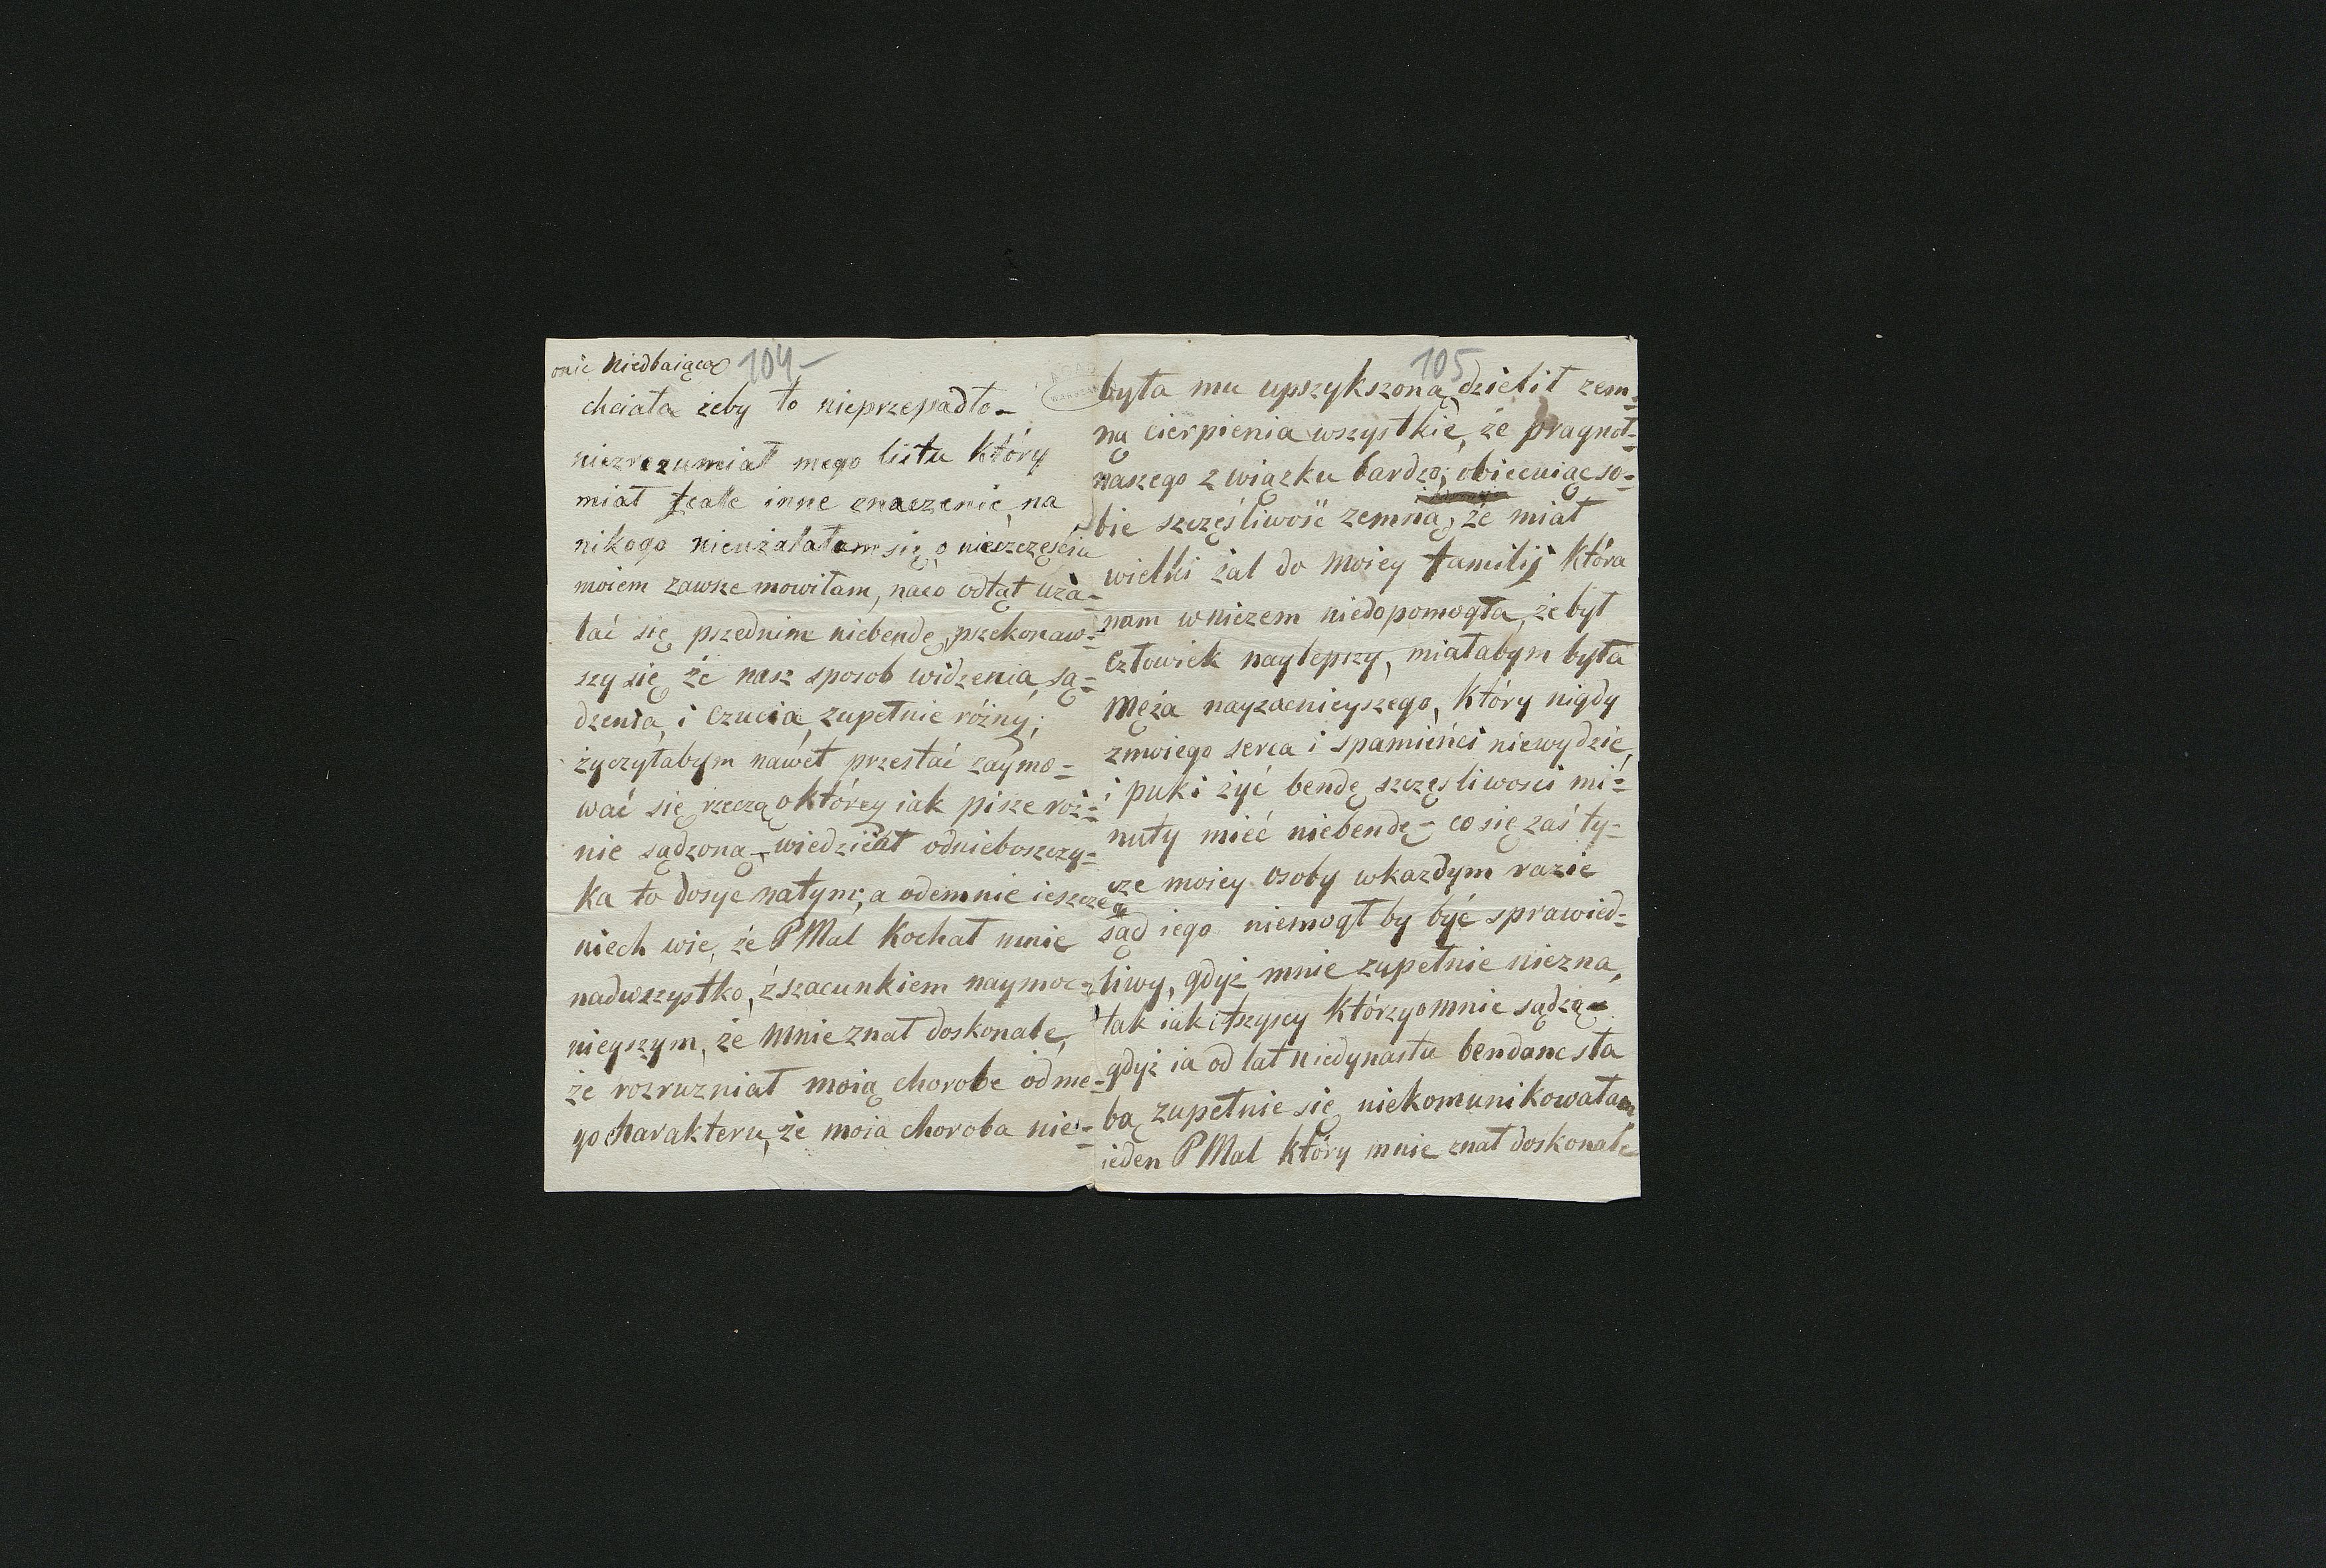 onic niedbaiąca
104
chciała żeby to nieprzepadło –
niezrozumiał mego listu który
miał całe inne znaczenie, na
nikogo nieużalałam się, o nieszczęściu
moiem zawsze mowiłam, naco odtąt uża-
lać się przednim niebendę, przekonaw-
szy się że nasz sposob widzenia, są-
dzenia, i czucia, zupełnie różny,
życzyłabym nawet przestać zaymo-
wać się rzeczą o którey iak pisze roż-
nie sądzoną, wiedział odnieboszczy-
ka to dosyc natym, a odemnie ieszcze
niech wie, że PMal kochał mnie
nadwszystko, zszacunkiem naymoc-
nieyszym, że mnie znał doskonale,
że rozruzniał moią chorobe odme-
go charakteru, że moia choroba nie-
105
była mu upszykszoną, dzielił zem-
ną cierpienia wszystkie, że pragnoł
naszego związku bardzo, obiecuiąc so-
bie szczęśliwość zemną, że miał
wielki żal do moiey familij która
nam wniczem niedopomogła, że był
człowiek naylepszy, miałabym była
męża nayzacnieyszego, który nigdy
zmoiego serca i spamieńci niewydzie,
i puki żyć bendę szczęsliwosci mi-
nuty mieć niebendę – co się zaś ty-
cze moiey osoby wkażdym razie
sąd iego niemogł by być sprawied-
liwy, gdyż mnie zupełnie niezna,
tak iak wszyscy którzy omnie sądzą –
gdyż ia od lat niedynastu bendanc sła
bą zupełnie się niekomunikowałam
ieden PMal który mnie znał doskonale